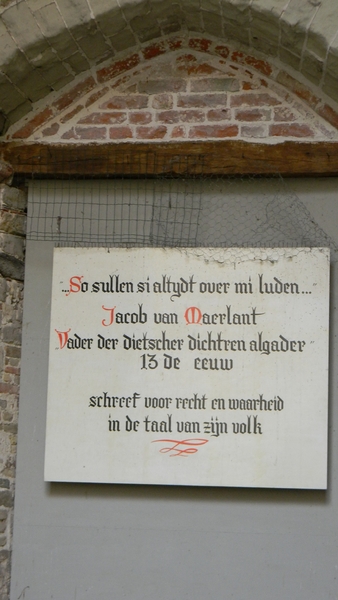 „So sullen si altydt over mi luden..."
Jacob van Maerlant
Vader der dietscher dichtren algader
13 de eeuw
schreef voor recht en waarheid
in de taal van zijn volk